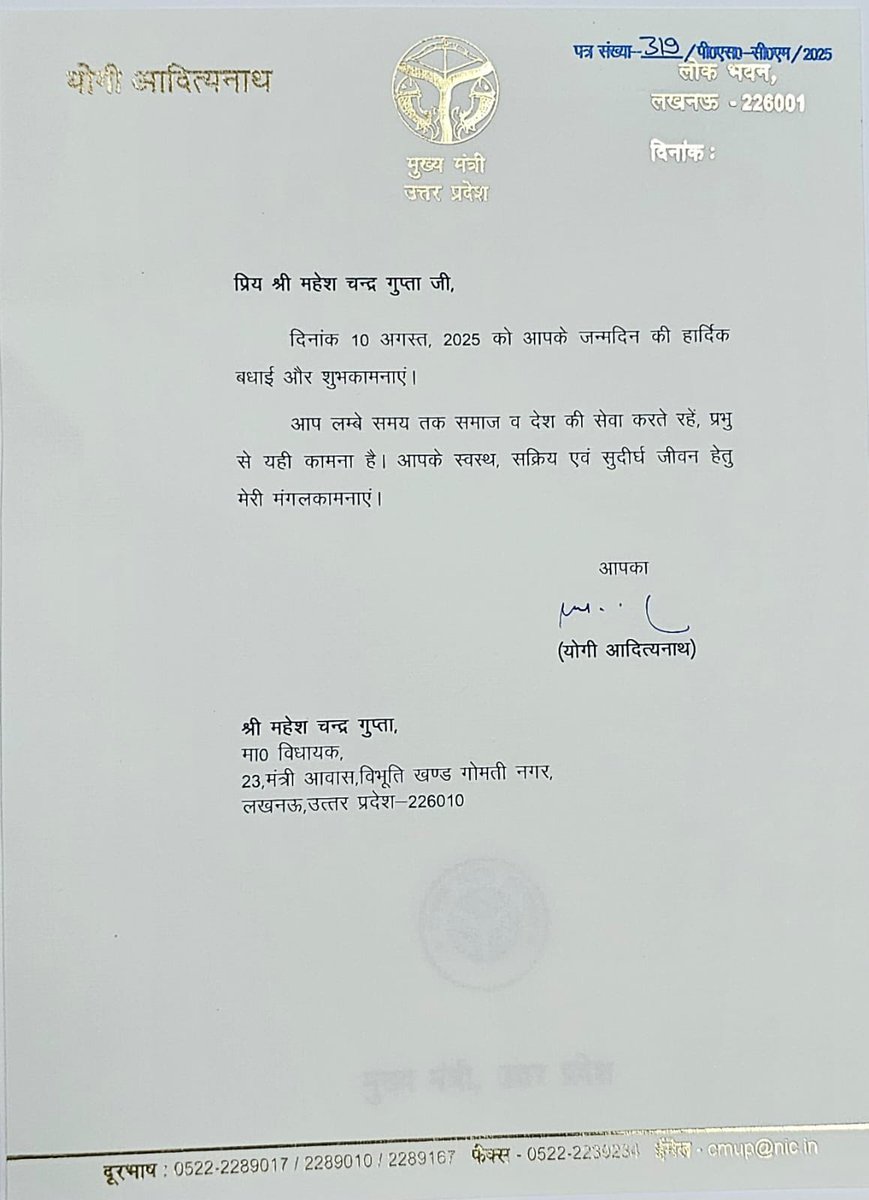 योगी आदित्यनाथ
मुख्य मंत्री
उत्तर प्रदेश
पत्र संख्या-319/पी0एस0-सी0एम/2025
लोक भवन,
लखनऊ - 226001
दिनांक :
प्रिय श्री महेश चन्द्र गुप्ता जी,
दिनांक 10 अगस्त, 2025 को आपके जन्मदिन की हार्दिक
बधाई और शुभकामनाएं।
आप लम्बे समय तक समाज व देश की सेवा करते रहें, प्रभु
से यही कामना है। आपके स्वस्थ, सक्रिय एवं सुदीर्घ जीवन हेतु
मेरी मंगलकामनाएं।
आपका
(योगी आदित्यनाथ)
श्री महेश चन्द्र गुप्ता,
मा0 विधायक,
23,मंत्री आवास,विभूति खण्ड गोमती नगर,
लखनऊ,उत्तर प्रदेश–226010
मुख्य मंत्री, उत्तर प्रदेश
दूरभाष : 0522-2289017 / 2289010 / 2289167 फैक्स - 0522-2239234 ईमेल - cmup@nic.in